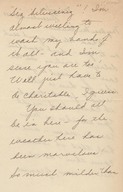 almost willing to
wash my hands of
it all. and I'm
sure you are too
Well just have to
be charitable I guess
You should all
be in here - for the
weather here has
been marvelous
So much milder than